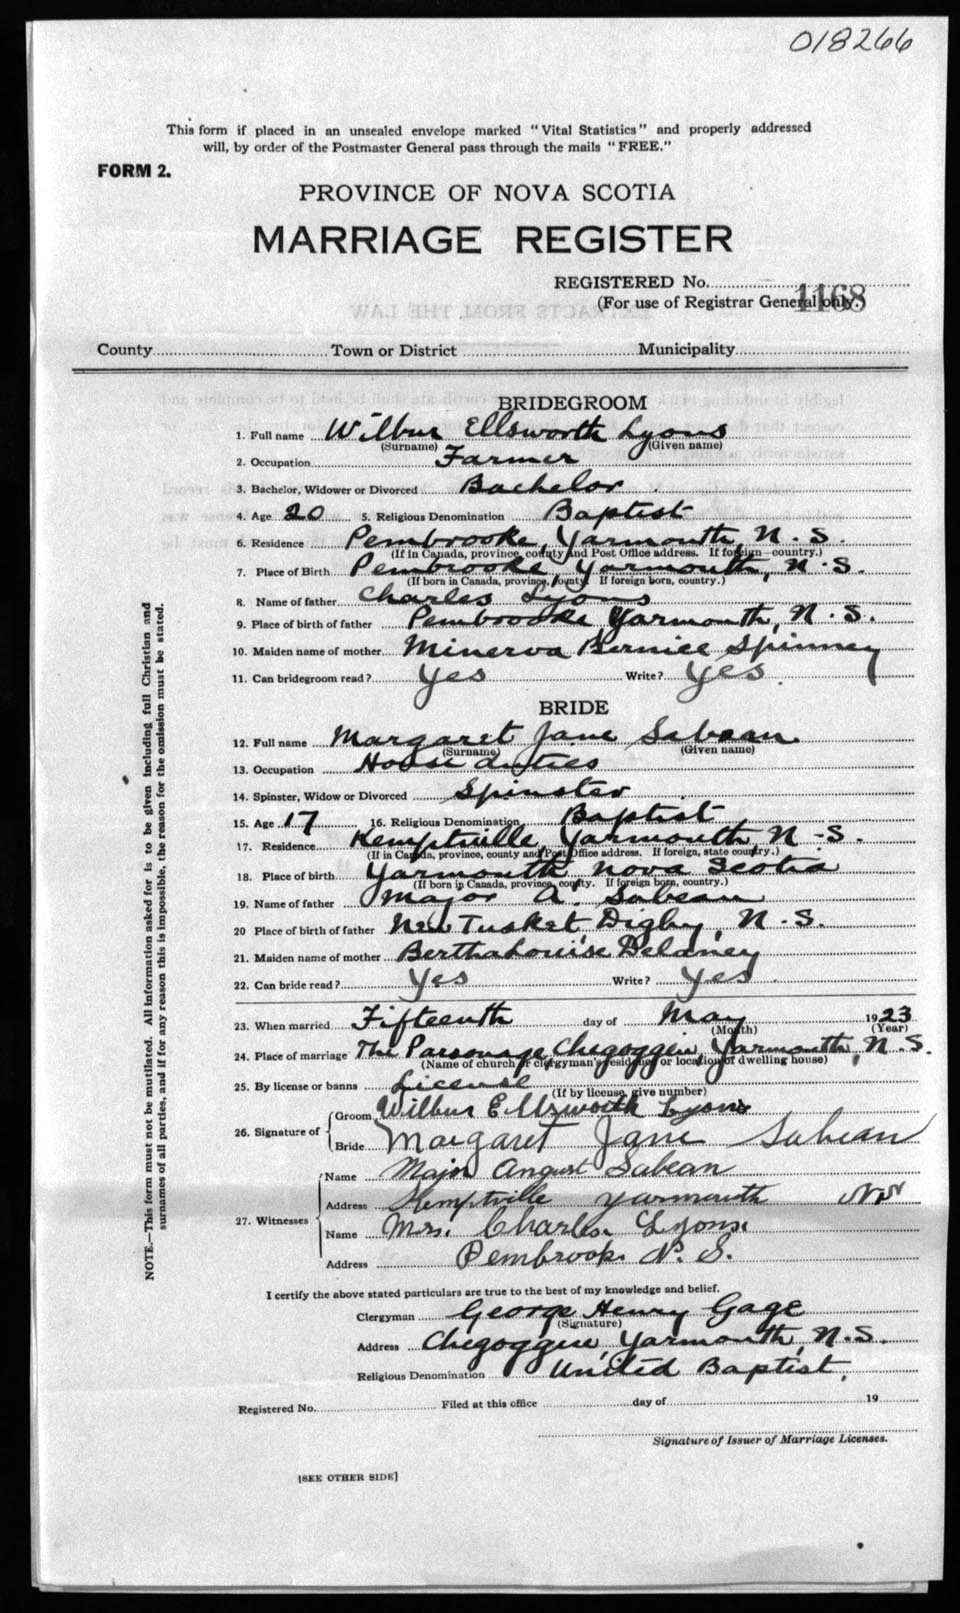 018266
This form if placed in an unsealed envelope marked "Vital Statistics" and properly addressed
will, by order of the Postmaster General pass through the mails "FREE."
FORM 2.
PROVINCE OF NOVA SCOTIA
MARRIAGE REGISTER
REGISTERED No. 1168
(For use of Registrar General only.)
EXTRACTS FROM THE LAW
County Town or District Municipality
BRIDEGROOM
1. Full name Wilbur Ellsworth Lyons
(Surname) (Given name)
2. Occupation Farmer
3. Bachelor, Widower or Divorced Bachelor
4. Age 20 5. Religious Denomination Baptist
6. Residence Pembrooke, Yarmouth, N.S.
(If in Canada, province, county and Post Office address. If foreign—country.)
7. Place of Birth Pembrooke, Yarmouth, N.S.
(If born in Canada, province, county. If foreign born, country.)
8. Name of father Charles Lyons
9. Place of birth of father Pembrooke Yarmouth, N.S.
10. Maiden name of mother Minerva Bernice Spinney
11. Can bridegroom read? Yes Write? Yes.
BRIDE
12. Full name Margaret Jane Sabean
(Surname) (Given name)
13. Occupation House duties
14. Spinster, Widow or Divorced Spinster
15. Age 17 16. Religious Denomination Baptist
17. Residence Kemptville, Yarmouth, N.S.
(If in Canada, province, county and Post Office address. If foreign, state country.)
18. Place of birth Yarmouth Nova Scotia
(If born in Canada, province, county. If foreign born, country.)
19. Name of father Major A. Sabean
20 Place of birth of father New Tusket, Digby, N.S.
21. Maiden name of mother Bertha Louise Delaney
22. Can bride read? Yes Write? Yes
23. When married Fifteenth day of May 1923
(Month) (Year)
24. Place of marriage The Parsonage, Chegoggin, Yarmouth, N.S.
(Name of church or clergyman's residence or location of dwelling house)
25. By license or banns License
(If by license, give number)
26. Signature of Groom Wilbur Ellsworth Lyons
Bride Margaret Jane Sabean
27. Witnesses
Name Major August Sabean
Address Kemptville Yarmouth NS
Name Mrs. Charles Lyons.
Address Pembrook N.S.
I certify the above stated particulars are true to the best of my knowledge and belief.
Clergyman George Henry Gage
(Signature)
Address Chegoggin, Yarmouth, N.S.
Religious Denomination United Baptist,
Registered No. Filed at this office day of 19
Signature of Issuer of Marriage Licenses.
[SEE OTHER SIDE]
NOTE.—This form must not be mutilated. All information asked for is to be given including full Christian and
surnames of all parties, and if for any reason this is impossible, the reason for the omission must be stated.